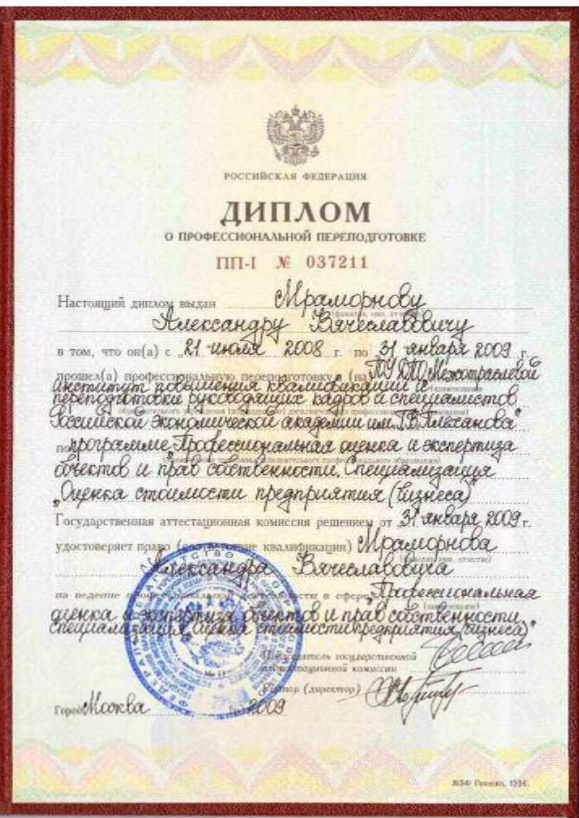 РОССИЙСКАЯ ФЕДЕРАЦИЯ
ДИПЛОМ
О ПРОФЕССИОНАЛЬНОЙ ПЕРЕПОДГОТОВКЕ
ПП-I № 037211
Настоящий диплом выдан Мраморнову
Александру Вячеславовичу
в том, что он(а) с „21 июля 2008 г. по 31 января 2009 г.
прошел(а) профессиональную переподготовку в (на) Межотраслевой
институт повышения квалификации и
переподготовки руководящих кадров и специалистов
Российской экономической академии им. Г.В. Плеханова"
по программе „Профессиональная оценка и экспертиза
объектов и прав собственности. Специализация
„Оценка стоимости предприятия (бизнеса)"
Государственная аттестационная комиссия решением от 31 января 2009 г.
удостоверяет право (соответствие квалификации) Мраморнова
Александра Вячеславовича
на ведение профессиональной деятельности в сфере „Профессиональная
оценка и экспертиза объектов и прав собственности
специализация „Оценка стоимости предприятия (бизнеса)"
Председатель государственной
аттестационной комиссии
Ректор (директор)
Город Москва 2009